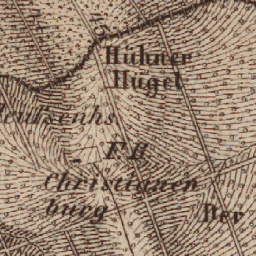 Hühner
Hügel
F. H.
Christianen
burg
Der